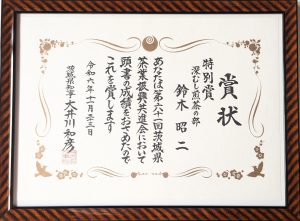 賞状
特別賞
深むし煎茶の部
鈴木昭二
あなたは第六十一回茨城県
茶業振興共進会において
頭書の成績をおさめたので
これを賞します
令和六年十一月二十三日
茨城県知事 大井川和彦